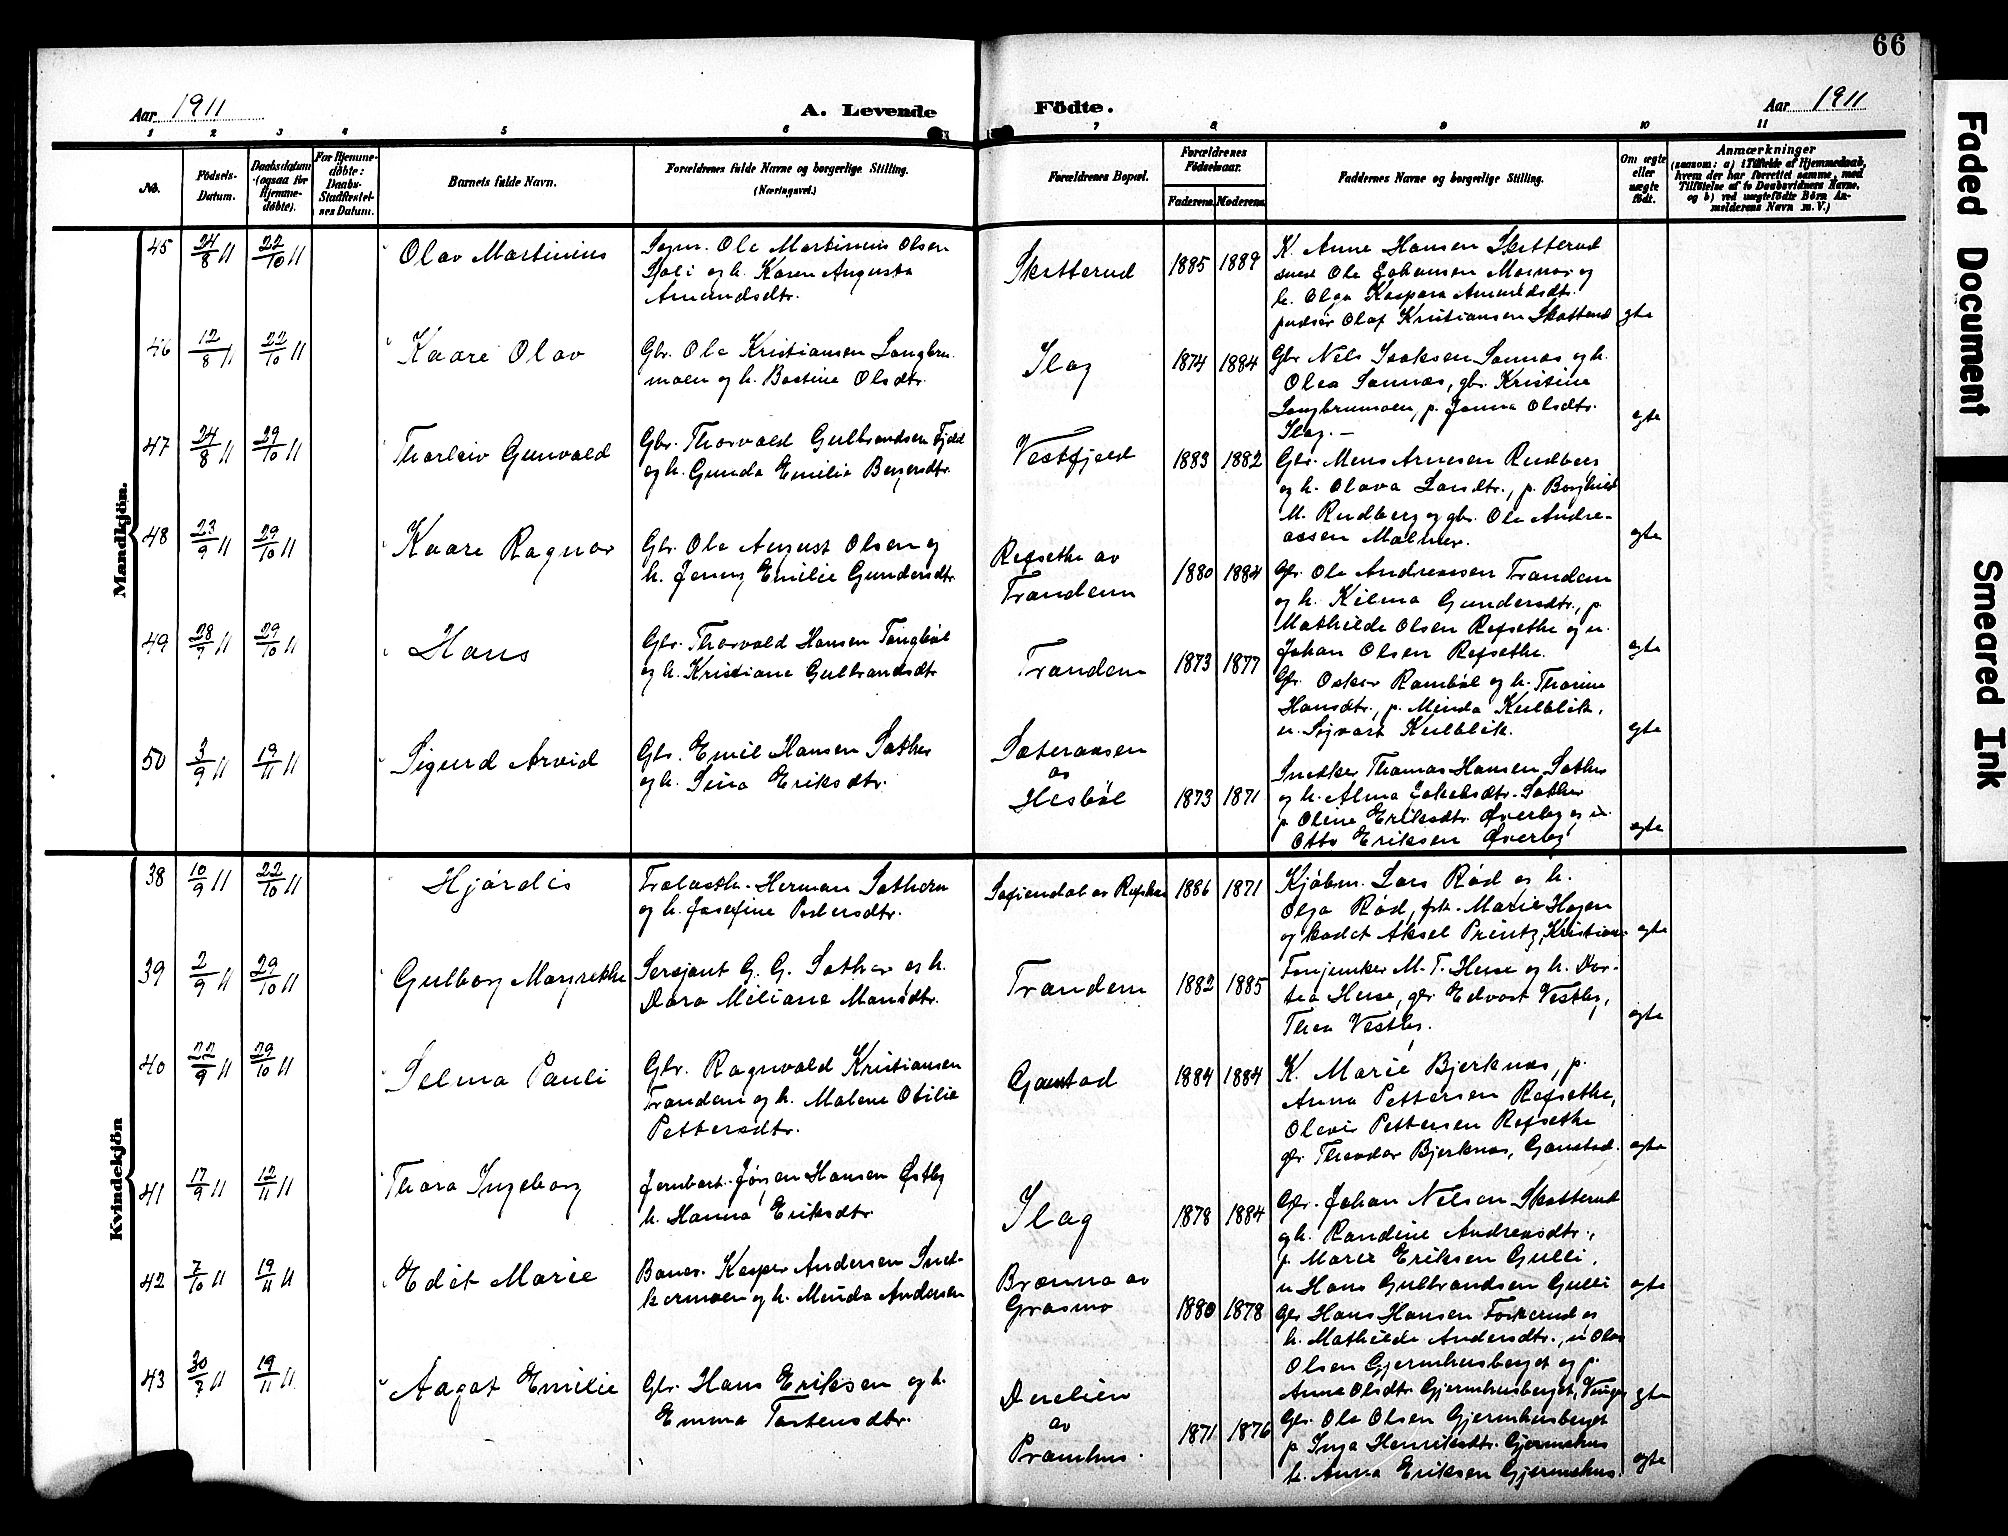 66
Aar 1911
A. Levende
Födte.
Aar 1911
1 2 3 4 5 6 7 8 9 10 11
No.
Födsels-
Datum.
Daabsdatum
(ogsaa for
Hjemme-
döbte).
For Hjemme-
döbte:
Daabs-
Stadfæstel-
ses Datum.
Barnets fulde Navn.
Forældrenes fulde Navne og borgerlige Stilling.
(Næringsvei.)
Forældrenes Bopæl.
Forældrenes
Födselsaar.
Faderens. Moderens.
Faddernes Navne og borgerlige Stilling.
Om ægte
eller
uægte
födt.
Anmærkninger
(saasom: a) i Tilfælde af Hjemmedaab,
hvem der har forrettet samme, med
Tilföielse af to Daabsvidners Navne,
og b) ved uægtefödte Börn An-
melderens Navn m. V.)
Mandkjön.
45 24/8 11 22/10 11 Olav Martinius
Ole Martinius Olsen
og h. Karen Augusta
Amundsdtr.
Skotterud 1885 1889
K. Anne Hansen Skotterud
Ole Johansen og
h. Olga Kaspara Amundsdtr.
Olaf Kristiansen Skotterud
egte
46 12/8 11 22/10 11 Kaare Olav
Gbr. Ole Kristiansen Langbru-
moen og h. Bastine Olsdtr.
Ilag 1874 1884
Gbr Nels Isaksen Sannæs og h.
Olea Sannæs, gbr. Kristine
Langbrumoen, p. Janna Olsdtr.
Ilag. —
egte
47 24/8 11 29/10 11 Thorleiv Gunvald
Gbr. Thorvald Gulbrandsen Fjeld
og h. Gunda Emilie Bergersdtr.
Vestfjeld 1883 1882
Gbr. Mens Arnesen Rudberg
og h. Olava Larsdtr., p. Borghild
M. Rudberg og gbr. Ole Andre-
assen Malmer.
egte
48 23/9 11 29/10 11 Kaare Ragnar
Gbr. Ole August Olsen og
h. Jenny Emilie Gundersdtr.
Refsethe av
Trandem 1880 1884
Gbr. Ole Andreassen Trandem
og h. Kilma Gundersdtr., p.
Mathilde Olsen Refsethe og u.
Johan Olsen Refsethe.
egte
49 28/7 11 29/10 11 Hans
Gbr. Thorvald Hansen Tangböl
og h. Kristiane Gulbrandsdtr
Trandem 1873 1877
Gbr. Oskar Ramböl og h. Thorine
Hansdtr., p. Minda Kulblik,
u. Sigvart Kulblik.
egte
50 3/9 11 19/11 11 Sigurd Arvid
Gbr. Emil Hansen Sæther
og h. Sina Eriksdtr.
Sæteraasen
av
Hesböl 1873 1871
Snedker Thomas Hansen Sæther
og h. Alma Jakobsdtr. Sæther
p. Oline Eriksdtr. Øverby og u.
Otto Eriksen Øverby
egte
Kvindekjön
38 10/9 11 22/10 11 Hjördis
Trælasth. Herman Sæthern
og h. Josefine Pedersdtr.
Sofiendal av Refsethe 1886 1871
Kjöbm. Lars Röd og h.
Olga Röd, frk. Marie Hagen
og kadet Aksel Printz, Kristiania
egte
39 2/9 11 29/10 11 Gulborg Margrethe
Sersjant G. G. Sæther og h.
Dora Miliane Mansdtr.
Trandem 1882 1885
Fanejunker M. T. Huse og h. Dor-
tea Huse, gbr. Edvart Vestby,
Thea Vestby.
egte
40 22/9 11 29/10 11 Selma Pauli
Gbr. Ragnvald Kristiansen
Trandem og h. Malene Otilie
Pettersdtr.
Gaustad 1884 1884
K. Marie Bjerknæs, p.
Anna Pettersen Refsethe,
Olavis Pettersen Refsethe
gbr. Theodor Bjerknæs, Gaustad.
egte
41 17/9 11 12/11 11 Thora Ingeborg
Jernbart. Jörgen Hansen Østby
h. Hanna Eriksdtr
Ilag 1878 1884
Gbr. Johan Nelsen Skotterud
og h. Randine Andreasdtr.,
p. Marie Eriksen Gulli,
u Hans Gulbrandsen Gulli
egte
42 7/10 11 19/11 11 Edit Marie
Banev. Kasper Andersen Sned-
kermoen og h. Minda Andersen
Brænna av
Græsmo 1880 1878
Gbr Hans Hansen Foskerud og
h. Mathilde Andersdtr., u Olav
Olsen Gjermhusberget og p.
Anna Olsdtr Gjermhusberget, Vinger
egte
43 30/7 11 19/11 11 Aagot Emilie
Gbr. Hans Eriksen og h.
Emma Tostensdtr.
Duelien
av
Pramhus. 1871 1876
Gbr. Ole Olsen Gjermhusberget
p. Inga Henriksdtr. Gjermshus
h. Anna Eriksen Gjermshus.
egte
Faded Document
Smeared Ink